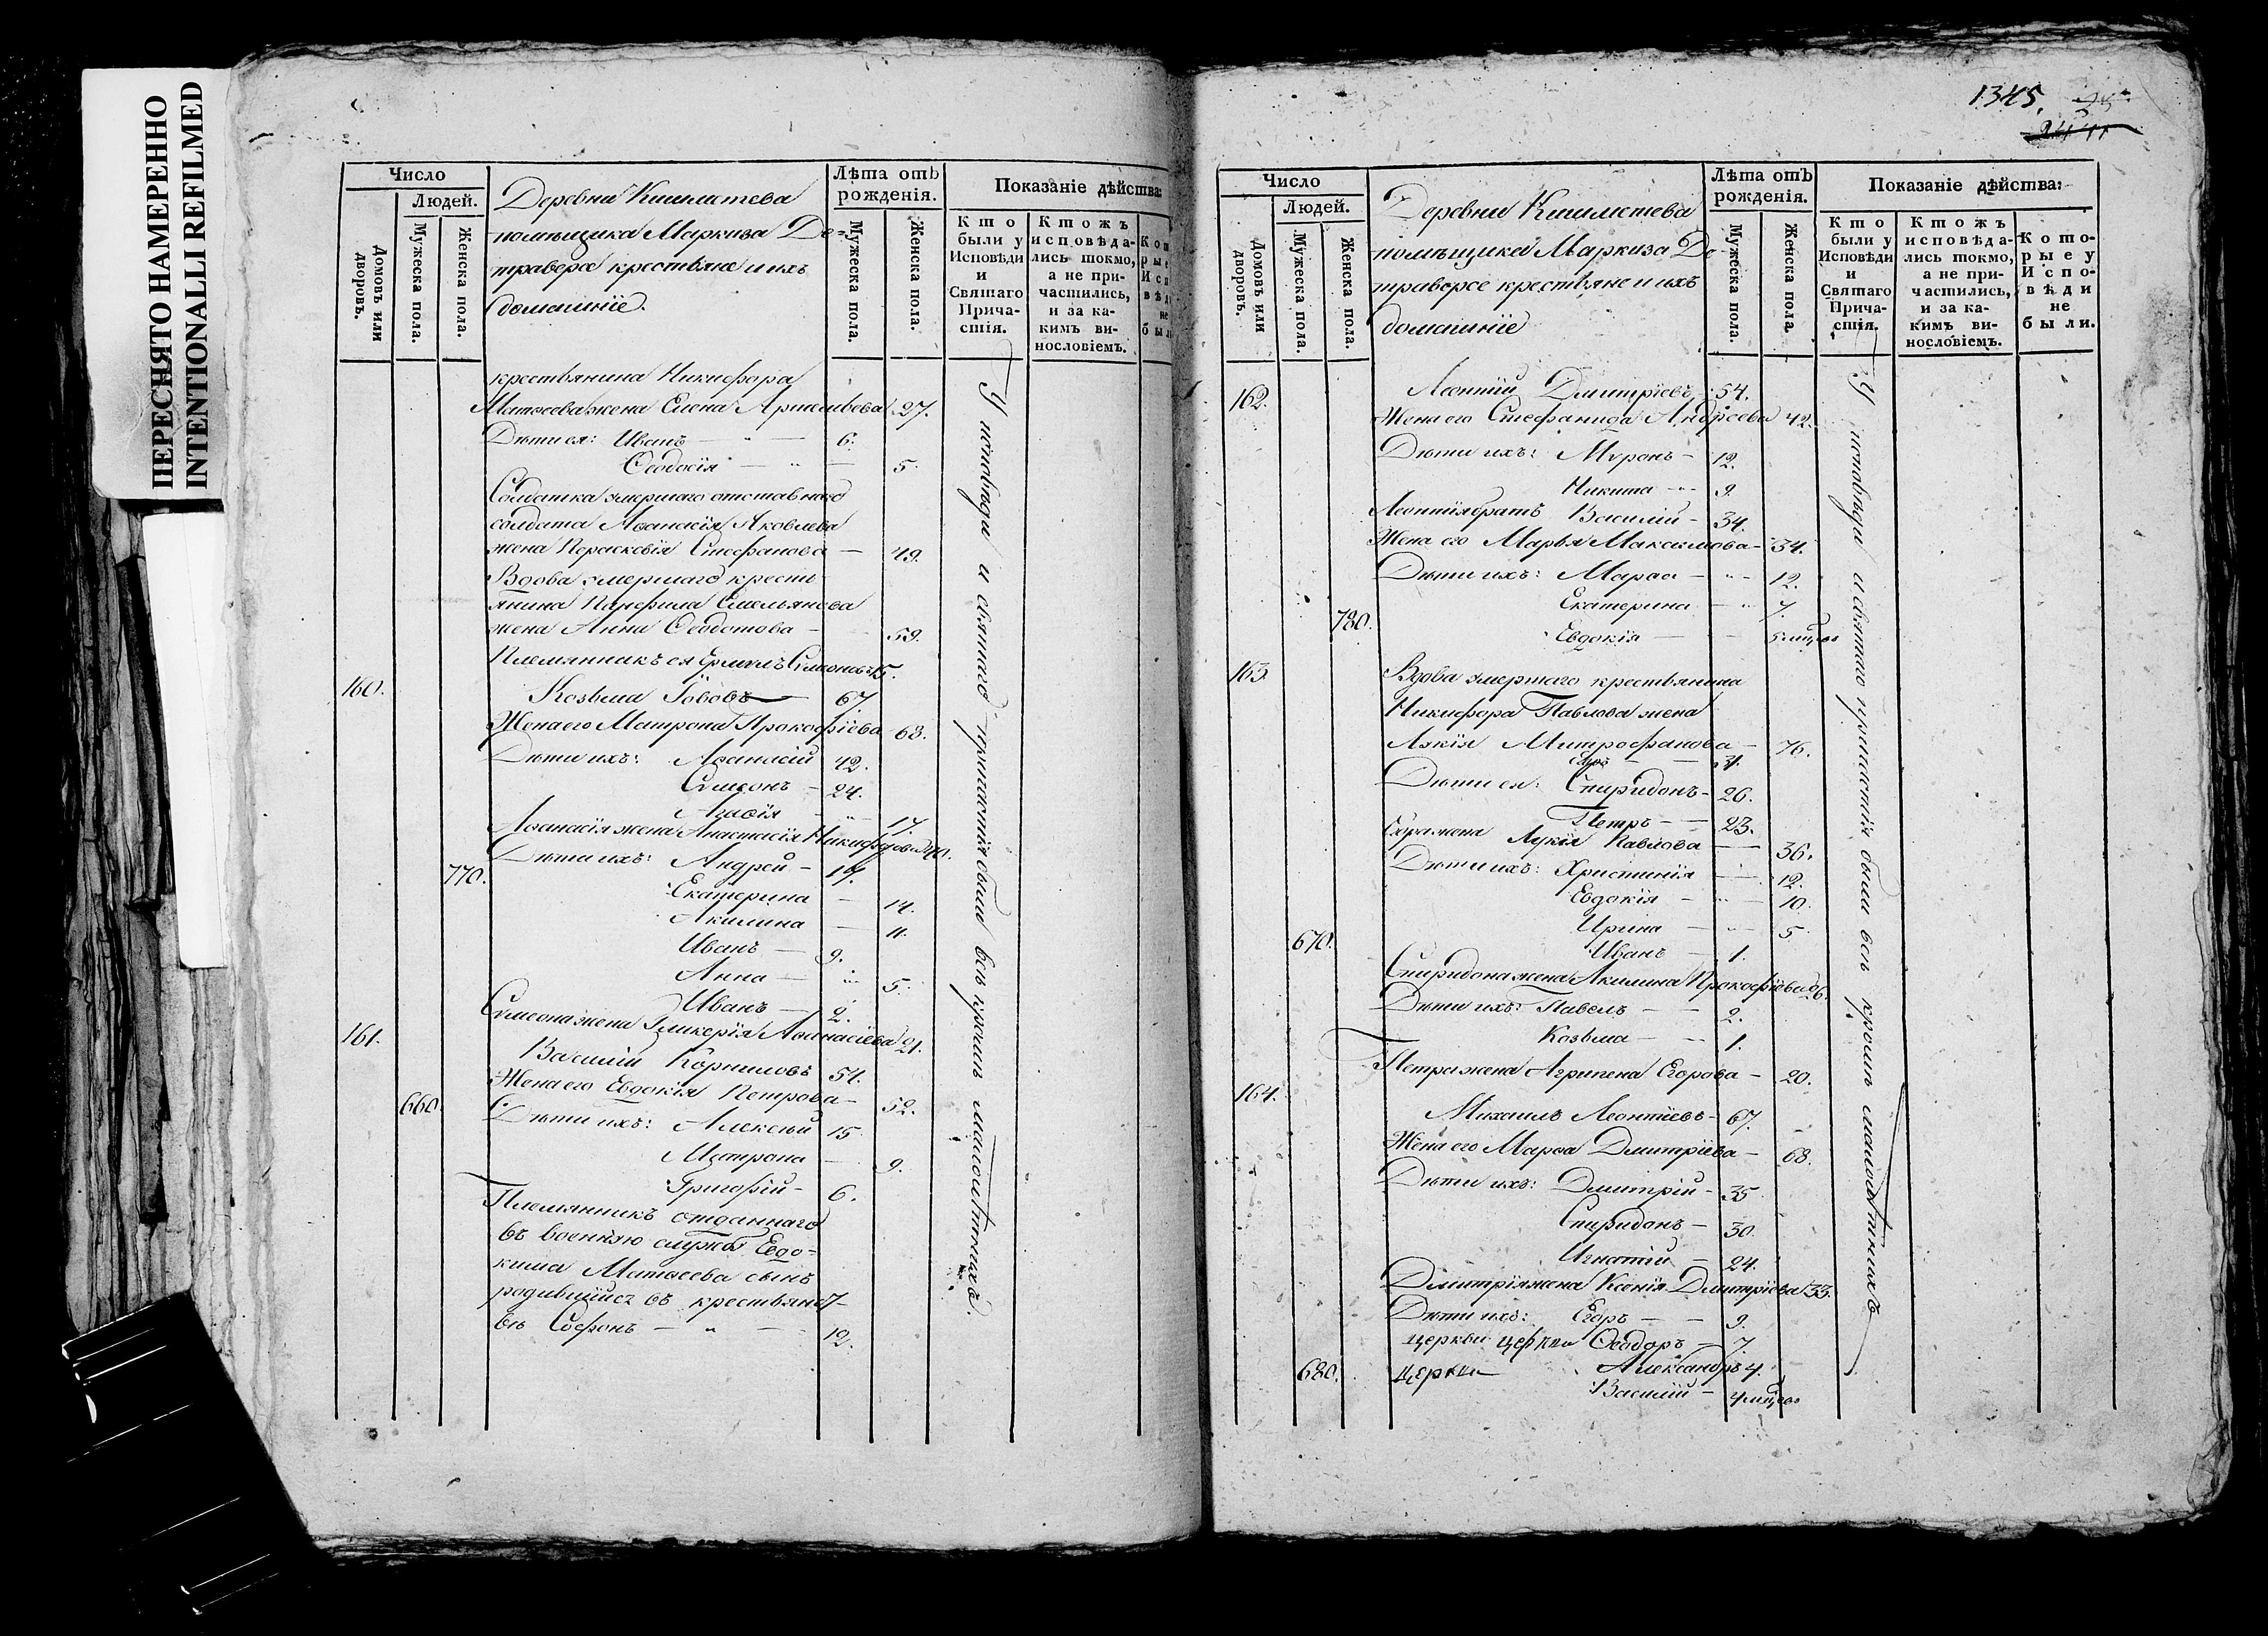 ПЕРЕСНЯТО НАМЕРЕННО
INTENTIONALLI REFILMED
Число
Людей.
Домовъ или дворовъ.
Мужеска пола.
Женска пола.
Деревни Кишмстева
помѣщика Маркиза Де=
траверсе крестьяне и ихъ
домашніе.
Лѣта отъ рожденія.
Мужеска пола.
Женска пола.
Показаніе дѣйства:
Кто были у Исповѣди и Святаго Причастія.
Ктожъ исповѣдались токмо, а не причастились, и за какимъ винословіемъ.
крестьянина Никифора
Матвеева жена Елена Артемьева 27.
Дѣти ея: Иванъ — " — 6.
Ѳеодосія — " — 5.
Солдатка умершаго отставнаго
солдата Аѳанасія Яковлева
жена Параскевія Стефанова — 49.
Вдова умершаго крестья
янина Панфила Емельянова
жена Анна Ѳеодотова — 59.
Племянникъ ея Ермилъ Симеоновъ 15.
160. Козьма Іововъ — 67.
Жена его Матрона Прокофіева 68.
Дѣти ихъ: Аѳанасій 42.
Сѵмеонъ — 24.
Агафія — " — 17.
Аѳанасія жена Анастасія Никифорова 40.
Дѣти ихъ: Андрей — 17.
770. Екатерина — 14.
Акилина — 11.
Иванъ — 9.
Анна — 5.
Иванъ — 2.
Сѵмеона жена Гликерія Аѳанасіева 21.
161. Василій Корниловъ 54.
Жена его Евдокія Петрова — 52.
660. Дѣти ихъ: Алексѣй 15
Матрона — 9.
Григорій — 6.
Племянникъ отданнаго
въ военную службу Евдо=
кима Матвеева сынъ
родившійся въ крестьянст-
вѣ Софонъ — " — 12.
У исповѣди и святаго причастія были всѣ кромѣ малолѣтнихъ.
1345.
Число
Людей.
Домовъ или дворовъ.
Мужеска пола.
Женска пола.
Деревни Кишмстева
помѣщика Маркиза Де
траверсе крестьяне и ихъ
домашніе
Лѣта отъ рожденія.
Мужеска пола.
Женска пола.
Показаніе дѣйства:
Кто были у Исповѣди и Святаго Причастія.
Ктожъ исповѣдались токмо, а не причастились, и за какимъ винословіемъ.
Которые у Исповѣди не были.
162. Леонтій Дмитріевъ 54.
Жена его Стефанида Андреева 42.
Дѣти ихъ: Мѵронъ — 12.
Никита — " — 9.
Леонтія братъ Василій — 34.
Жена его Марья Максимова — 34.
Дѣти ихъ: Марѳа — " — 12.
Екатерина — " 7.
780. Евдокія — 5 мцовъ
163. Вдова умершаго крестьянина
Никифора Павлова жена
Лукія Митрофанова — 76.
Егоръ — 31.
Дѣти ея: Спиридонъ — 26.
Петръ — 23.
Егора жена Лукія Павлова — 36.
Дѣти ихъ: Христинія — 12.
Евдокія — " — 10.
Ирина — " — 5.
670. Иванъ — 1.
Спиридона жена Акилина Прокофіева 26.
Дѣти ихъ: Павелъ — 2.
Козьма — 1.
Петра жена Агрипена Егорова — 20.
164. Михаилъ Леонтіевъ — 67.
Жена его Марѳа Дмитріева — 68.
Дѣти ихъ: Дмитрій — 35
Спиридонъ — 30.
Игнатій — 24.
Дмитрія жена Ксенія Дмитріева 33.
Дѣти ихъ: Егоръ — 9.
церкви церкви Ѳеодоръ — 7.
680. церкви Александръ 4.
Василій — 4 мцовъ
У исповѣди и святаго причастія были всѣ кромѣ малолѣтнихъ